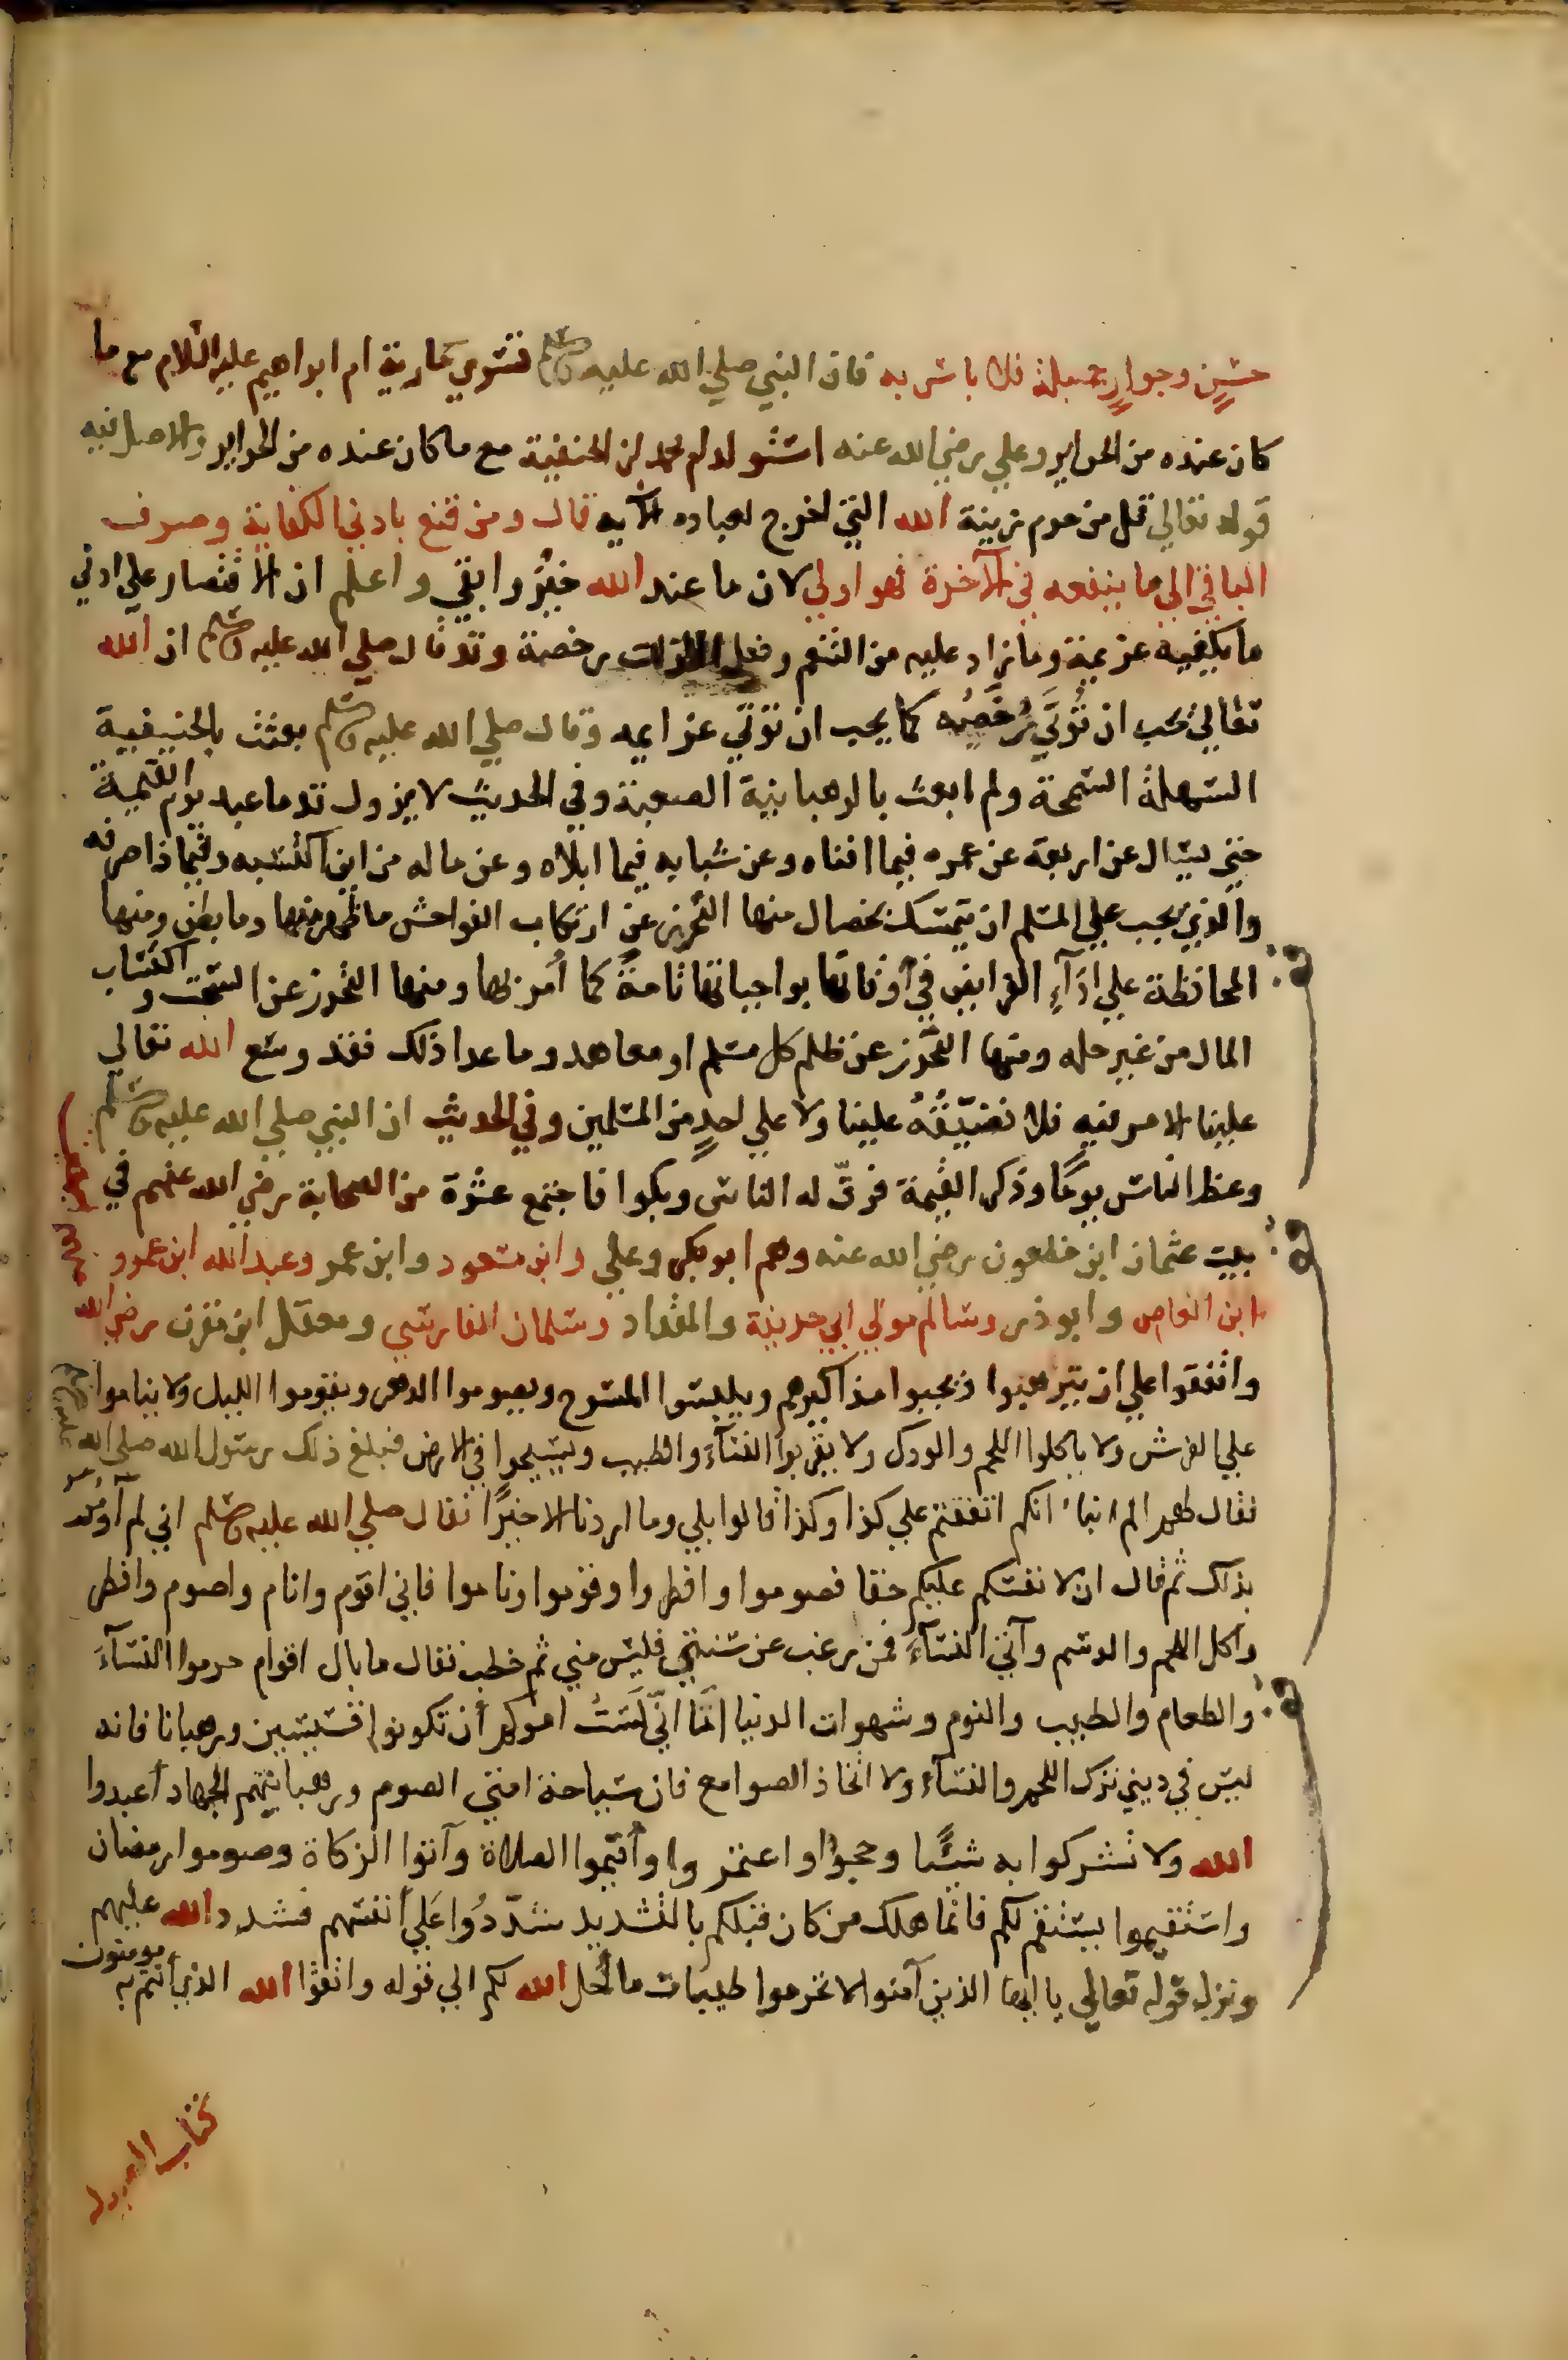 حسنٍ وجوارٍ جميلة فلا باس به فان النبي صلي الله عليه وسلم تسري بمارية ام ابراهيم عليه السلام مع ما
كان عنده من الحراير وعلي رضي الله عنه استولد ام محمد ابن الحنفية مع ما كان عنده من الحراير والاصل فيه
قوله تعالي قل من حرم زينة الله التي اخرج لعباده الآية قال ومن قنع بادني الكفاية وصرف
الباقي الي ما ينفعه في الآخرة فهو اولي لان ما عند الله خيرٌ وابقي واعلم ان الاقتصار علي ادني
ما يكفيه عزيمة وما زاد عليه من التنعم ونيل اللذات رخصة وقد قال صلي الله عليه وسلم ان الله
تعالي يحب ان تُؤتَي رُخَصُه كما يحب ان تؤتي عزايمه وقال صلي الله عليه وسلم بعثت بالحنيفية
السهلة السمحة ولم ابعث بالرهبانية الصعبة وفي الحديث لا يزول قدما عبد يوم القيمة
حتي يسال عن اربعة عن عمره فيما افناه وعن شبابه فيما ابلاه وعن ماله من اين اكتسبه وفيما ذا صرفه
والذي يجب علي المسلم ان يتمسك بخصال منها التحرز عن ارتكاب الفواحش ما ظهر منها وما بطن ومنها
المحافظة علي ادآءِ الفرايض في أوقاتها بواجباتها تامةً كما أُمر بها ومنها التحرز عن السحت واكتساب
المال من غير حله ومنها التحرّز عن ظلم كل مسلم او معاهد وما عدا ذلك فقد وسع الله تعالي
علينا الامر فيه فلا نضيّقُهُ علينا ولا علي احدٍ من المسلمين وفي الحديث ان النبي صلي الله عليه وسلم
وعظ الناس يومًا وذكر القيمة فرقّ له الناس وبكوا فاجتمع عشرة من الصحابة رضي الله عنهم في
بيت عثمان ابن مظعون رضي الله عنه وهم ابو بكر وعلي وابن مسعود وابن عمر وعبد الله ابن عمرو
ابن العاص وابو ذر وسالم مولي ابي حذيفة والمقداد وسلمان الفارسي ومعقل ابن مقرن رضي الله
واتفقوا علي ان يترهبوا ويجبوا مذاكيرهم ويلبسوا المسوح ويصوموا الدهر ويقوموا الليل ولا يناموا
علي الفرش ولا ياكلوا اللحم والودك ولا يقربوا النسآءَ والطيب ويسيحوا في الارض فبلغ ذلك رسول الله صلي الله عليه وسلم
فقال لهم الم انبأ انكم اتفقتم علي كذا وكذا قالوا بلي وما اردنا الا خيرًا فقال صلي الله عليه وسلم اني لم أُومر
بذلك ثم قال ان لانفسكم عليكم حقا فصوموا وافطروا وقوموا وناموا فاني اقوم وانام واصوم وافطر
وآكل اللحم والدسم وآتي النسآءَ فمن رغب عن سنتي فليس مني ثم خطب فقال ما بال اقوام حرموا النسآءَ
والطعام والطيب والنوم وشهوات الدنيا امّا انّي لَستُ امركم أن تكونوا قسيسين ورهبانا فانه
ليس في ديني ترك اللحم والنسآءِ ولا اتخاذ الصوامع فان سياحة امتي الصوم ورهبانيتهم الجهاد أعبدوا
الله ولا تشركوا به شيئًا وحجوا واعتمروا وأقيموا الصلاة وآتوا الزكاة وصوموا رمضان
واستقيموا يستقم لكم فانما هلك من كان قبلكم بالتشديد شدّدُوا عَلي أنفسهم فشدد الله عليهم
ونزل قوله تعالي يا ايها الذين آمنوا لا تحرموا طيبات ما أحل الله لكم الي قوله واتقوا الله الذي أنتم به مومنون